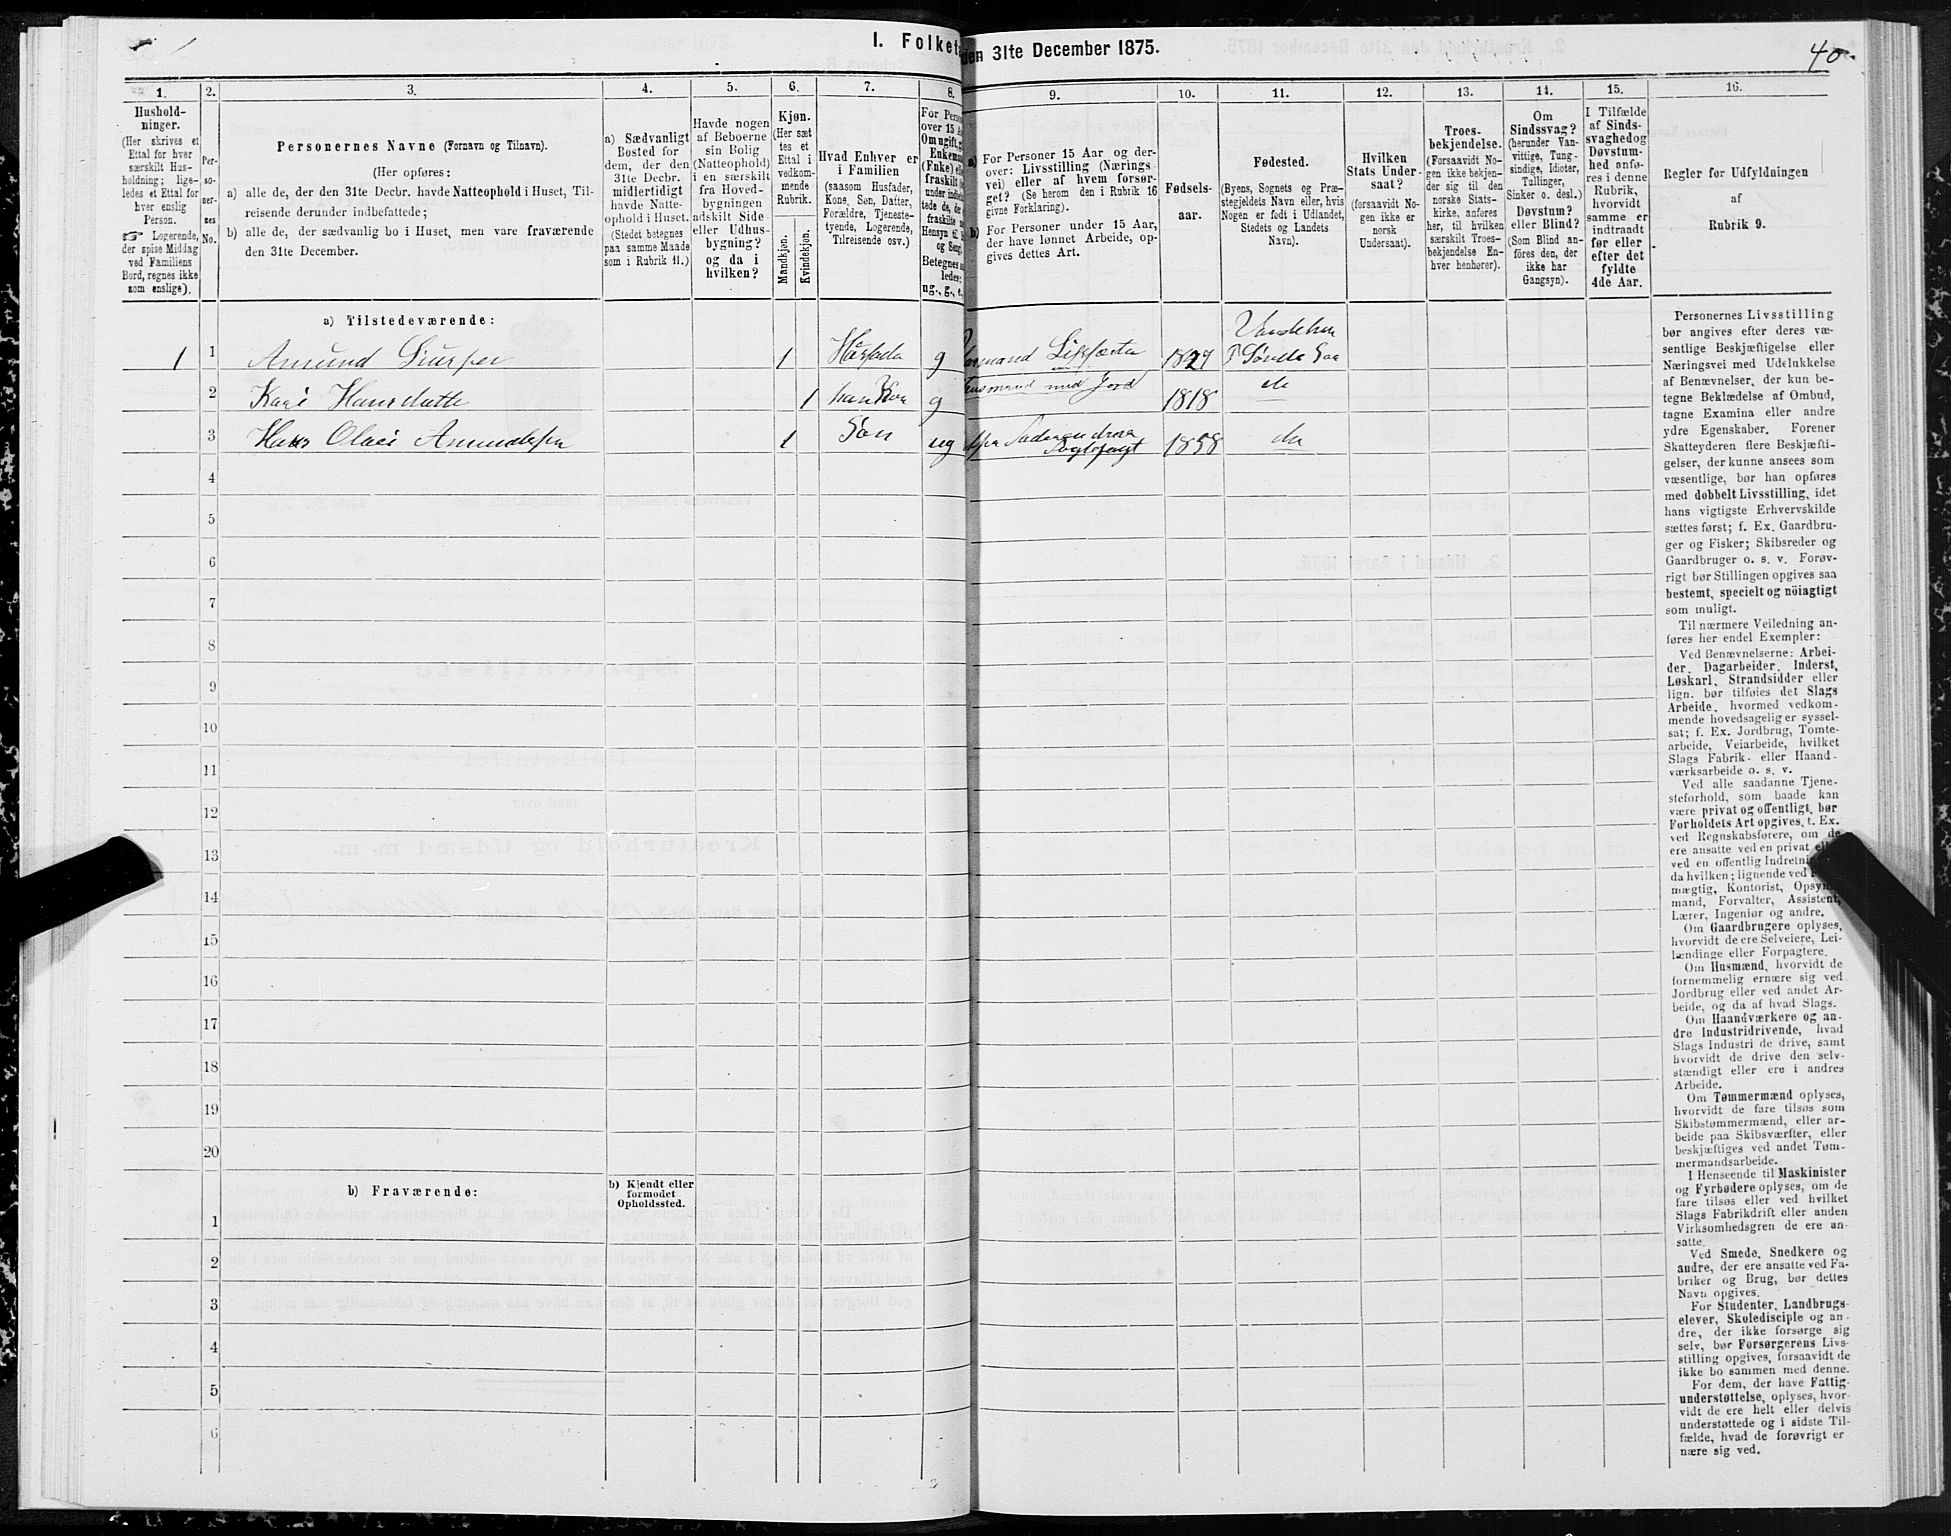 I. Folket
den 31te December 1875.
40.
1. 2. 3. 4. 5. 6. 7. 8. 9. 10. 11. 12. 13. 14. 15. 16.
Hushold-
ninger.
(Her skrives et
Ettal for hver
særskilt Hus-
holdning; lige-
ledes et Ettal for
hver enslig
Person.
☞ Logerende,
der spise Middag
ved Familiens
Bord, regnes ikke
som enslige).
Per-
so-
ner-
nes
No.
Personernes Navne (Fornavn og Tilnavn).
(Her opføres:
a) alle de, der den 31te Decbr. havde Natteophold i Huset, Til-
reisende derunder indbefattede;
b) alle de, der sædvanlig bo i Huset, men vare fraværende
den 31te December.
a) Sædvanligt
Bosted for
dem, der den
31te Decbr.
midlertidigt
havde Natte-
ophold i Huset.
(Stedet betegnes
paa samme Maade
som i Rubrik 11.)
Havde nogen
af Beboerne
sin Bolig
(Natteophold)
i en særskilt
fra Hoved-
bygningen
adskilt Side-
eller Udhus-
bygning?
og da i
hvilken?
Kjøn.
(Her sæt-
tes et
Ettal i
vedkom-
mende
Rubrik.
Mandkjøn.
Kvindekjøn.
Hvad Enhver er
i Familien
(saasom Husfader,
Kone, Søn, Datter,
Forældre, Tjeneste-
tyende, Logerende,
Tilreisende osv.)
For Pers
over 15 A
Om ugift, g
Enkema
(Enke) ell
fraskilt
under indbe
tede de, der
fraskilte
Hensyn til
og Seng.
Betegnes
ledes:
ug., g., e.,
a) For Personer 15 Aar og der-
over: Livsstilling (Nærings-
vei) eller af hvem forsør-
get? (Se herom den i Rubrik 16
givne Forklaring).
b) For Personer under 15 Aar,
der have lønnet Arbeide, op-
gives dettes Art.
Fødsels-
aar.
Fødested.
(Byens, Sognets og Præ-
stegjeldets Navn eller, hvis
Nogen er født i Udlandet,
Stedets og Landets
Navn).
Hvilken
Stats Under-
saat?
(forsaavidt No-
gen ikke er
norsk
Undersaat).
Troes-
bekjendelse.
(Forsaavidt No-
gen ikke bekjen-
der sig til den
norske Stats-
kirke, anføres
her, til hvilken
særskilt Troes-
bekjendelse En-
hver henhører).
Om
Sindssvag?
(herunder Van-
vittige, Tung-
sindige, Idioter,
Tullinger,
Sinker o. desl.).
Døvstum?
eller Blind?
(Som Blind an-
føres den, der
ikke har
Gangsyn).
I Tilfælde
af Sinds-
svaghed og
Døvstum-
hed anfø-
res i denne
Rubrik,
hvorvidt
samme er
indtraadt
før eller
efter det
fyldte
4de Aar.
Regler før Udfyldningen
af
Rubrik 9.
a) Tilstedeværende:
1 1 Amund 1 g 1827
2 Hansdatte 1 g med Jord 1818 do
3 Hans Olaei Amundssen 1 Søn ug 1858 do
4
5
6
7
8
9
10
11
12
13
14
15
16
17
18
19
20
b) Fraværende:
b) Kjendt eller
formodet
Opholdssted.
1
2
3
4
5
6
Personernes Livsstilling
bør angives efter deres væ-
sentlige Beskjæftigelse eller
Næringsvei med Udelukkelse
af Benævnelser, der kun be-
tegne Beklædelse af Ombud,
tagne Examina eller andre
ydre Egenskaber. Forener
Skatteyderen flere Beskjæfti-
gelser, der kunne ansees som
væsentlige, bør han opføres
med dobbelt Livsstilling, idet
hans vigtigste Erhvervskilde
sættes først; f. Ex. Gaardbru-
ger og Fisker; Skibsreder og
Gaardbruger o. s. v. Forøv-
rigt bør Stillingen opgives saa
bestemt, specielt og nöiagtigt
som muligt.
Til nærmere Veiledning an-
føres her endel Exempler:
Ved Benævnelserne: Arbei-
der, Dagarbeider, Inderst,
Løskarl, Strandsidder eller
lign. bør tilføies det Slags
Arbeide, hvormed vedkom-
mende hovedsagelig er syssel-
sat; f. Ex. Jordbrug, Tomte-
arbeide, Veiarbeide, hvilket
Slags Fabrik- eller Haand-
værksarbeide o. s. v.
Ved alle saadanne Tjene-
steforhold, som baade kan
være privat og offentligt, bør
Forholdets Art opgives, t. Ex.
ved Regnskabsførere, om de
ere ansatte ved en privat el
ved en offentlig Indretnin
da hvilken; lignende ved
mægtig, Kontorist, Opsyns
mand, Forvalter, Assistent,
Lærer, Ingeniør og andre.
Om Gaardbrugere oplyses,
hvorvidt de ere Selveiere, Lei-
lændinge eller Forpagtere.
Om Husmænd, hvorvidt de
fornemmelig ernære sig ved
Jordbrug eller ved andet Ar-
beide, og da af hvad Slags.
Om Haandværkere og an-
dre Industridrivende, hvad
Slags Industri de drive, samt
hvorvidt de drive den selv-
stændigt eller ere i andres
Arbeide.
Om Tømmermænd oplyses,
hvorvidt de fare tilsøs som
Skibstømmermænd, eller ar-
beide paa Skibsværfter, eller
beskjæftiges ved andet Tøm-
mermandsarbeide.
I Henseende til Maskinister
og Fyrbødere oplyses, om de
fare tilsøs eller ved hvilket
Slags Fabrikdrift eller anden
Virksomhedsgren de ere an-
satte.
Ved Smede, Snedkere og
andre, der ere ansatte ved Fa-
briker og Brug, bør dettes
Navn opgives.
For Studenter, Landbrugs-
elever, Skoledisciple og an-
dre, der ikke forsørge sig
selv, bør Forsørgerens Livs-
stilling opgives, forsaavidt de
ikke bo sammen med denne.
For dem, der have Fattig-
understøttelse, oplyses, hvor-
vidt de ere helt eller delvis
understøttede og i sidste Til-
fælde, hvad de forøvrigt er
nære sig ved.